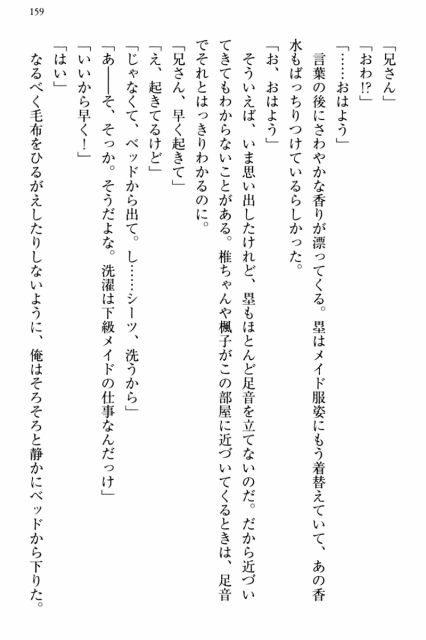 159
「兄さん」
「おわ!?」
「……おはよう」
言葉の後にさわやかな香りが漂ってくる。塁はメイド服姿にもう着替えていて、あの香
水もばっちりつけているらしかった。
「お、おはよう」
そういえば、いま思い出したけれど、塁もほとんど足音を立てないのだ。だから近づい
てきてもわからないことがある。椎ちゃんや楓子がこの部屋に近づいてくるときは、足音
でそれとはっきりわかるのに。
「兄さん、早く起きて」
「え、起きてるけど」
「じゃなくて、ベッドから出て。し……シーツ、洗うから」
「あ――そ、そっか。そうだよな。洗濯は下級メイドの仕事なんだっけ」
「いいから早く!」
「はい」
なるべく毛布をひるがえしたりしないように、俺はそろそろと静かにベッドから下りた。